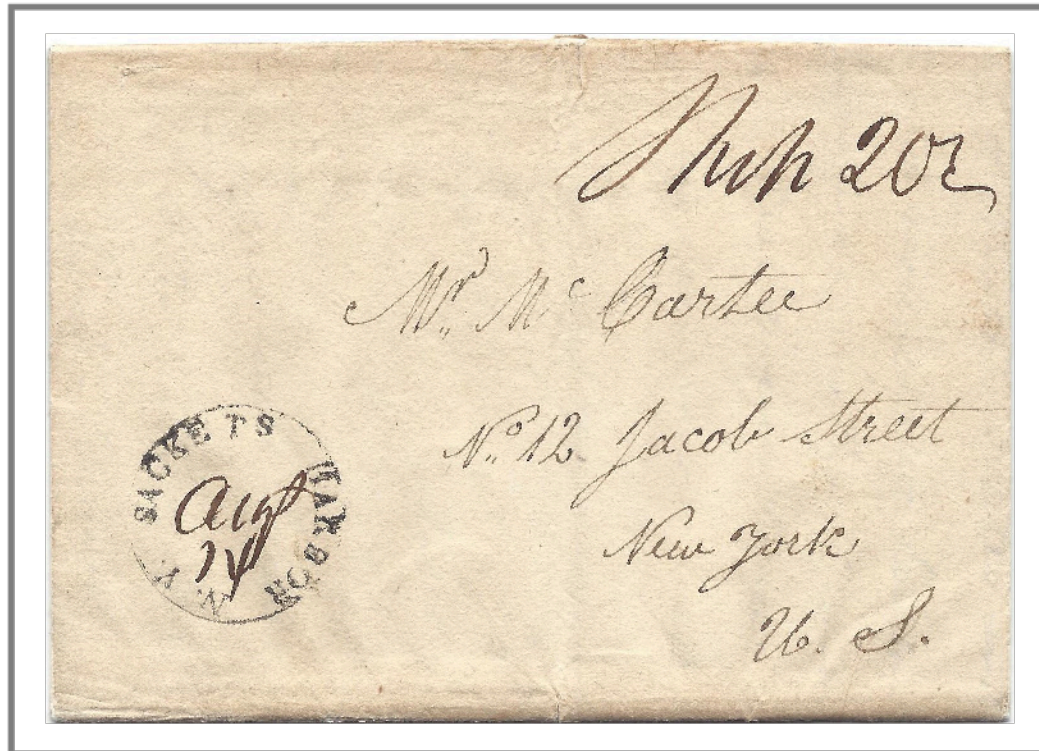 Ship 20¾
Mr. Mc Cartee
No. 12 Jacob Street
New York
U. S.
SACKETS HARBOR N.Y.
Aug
14